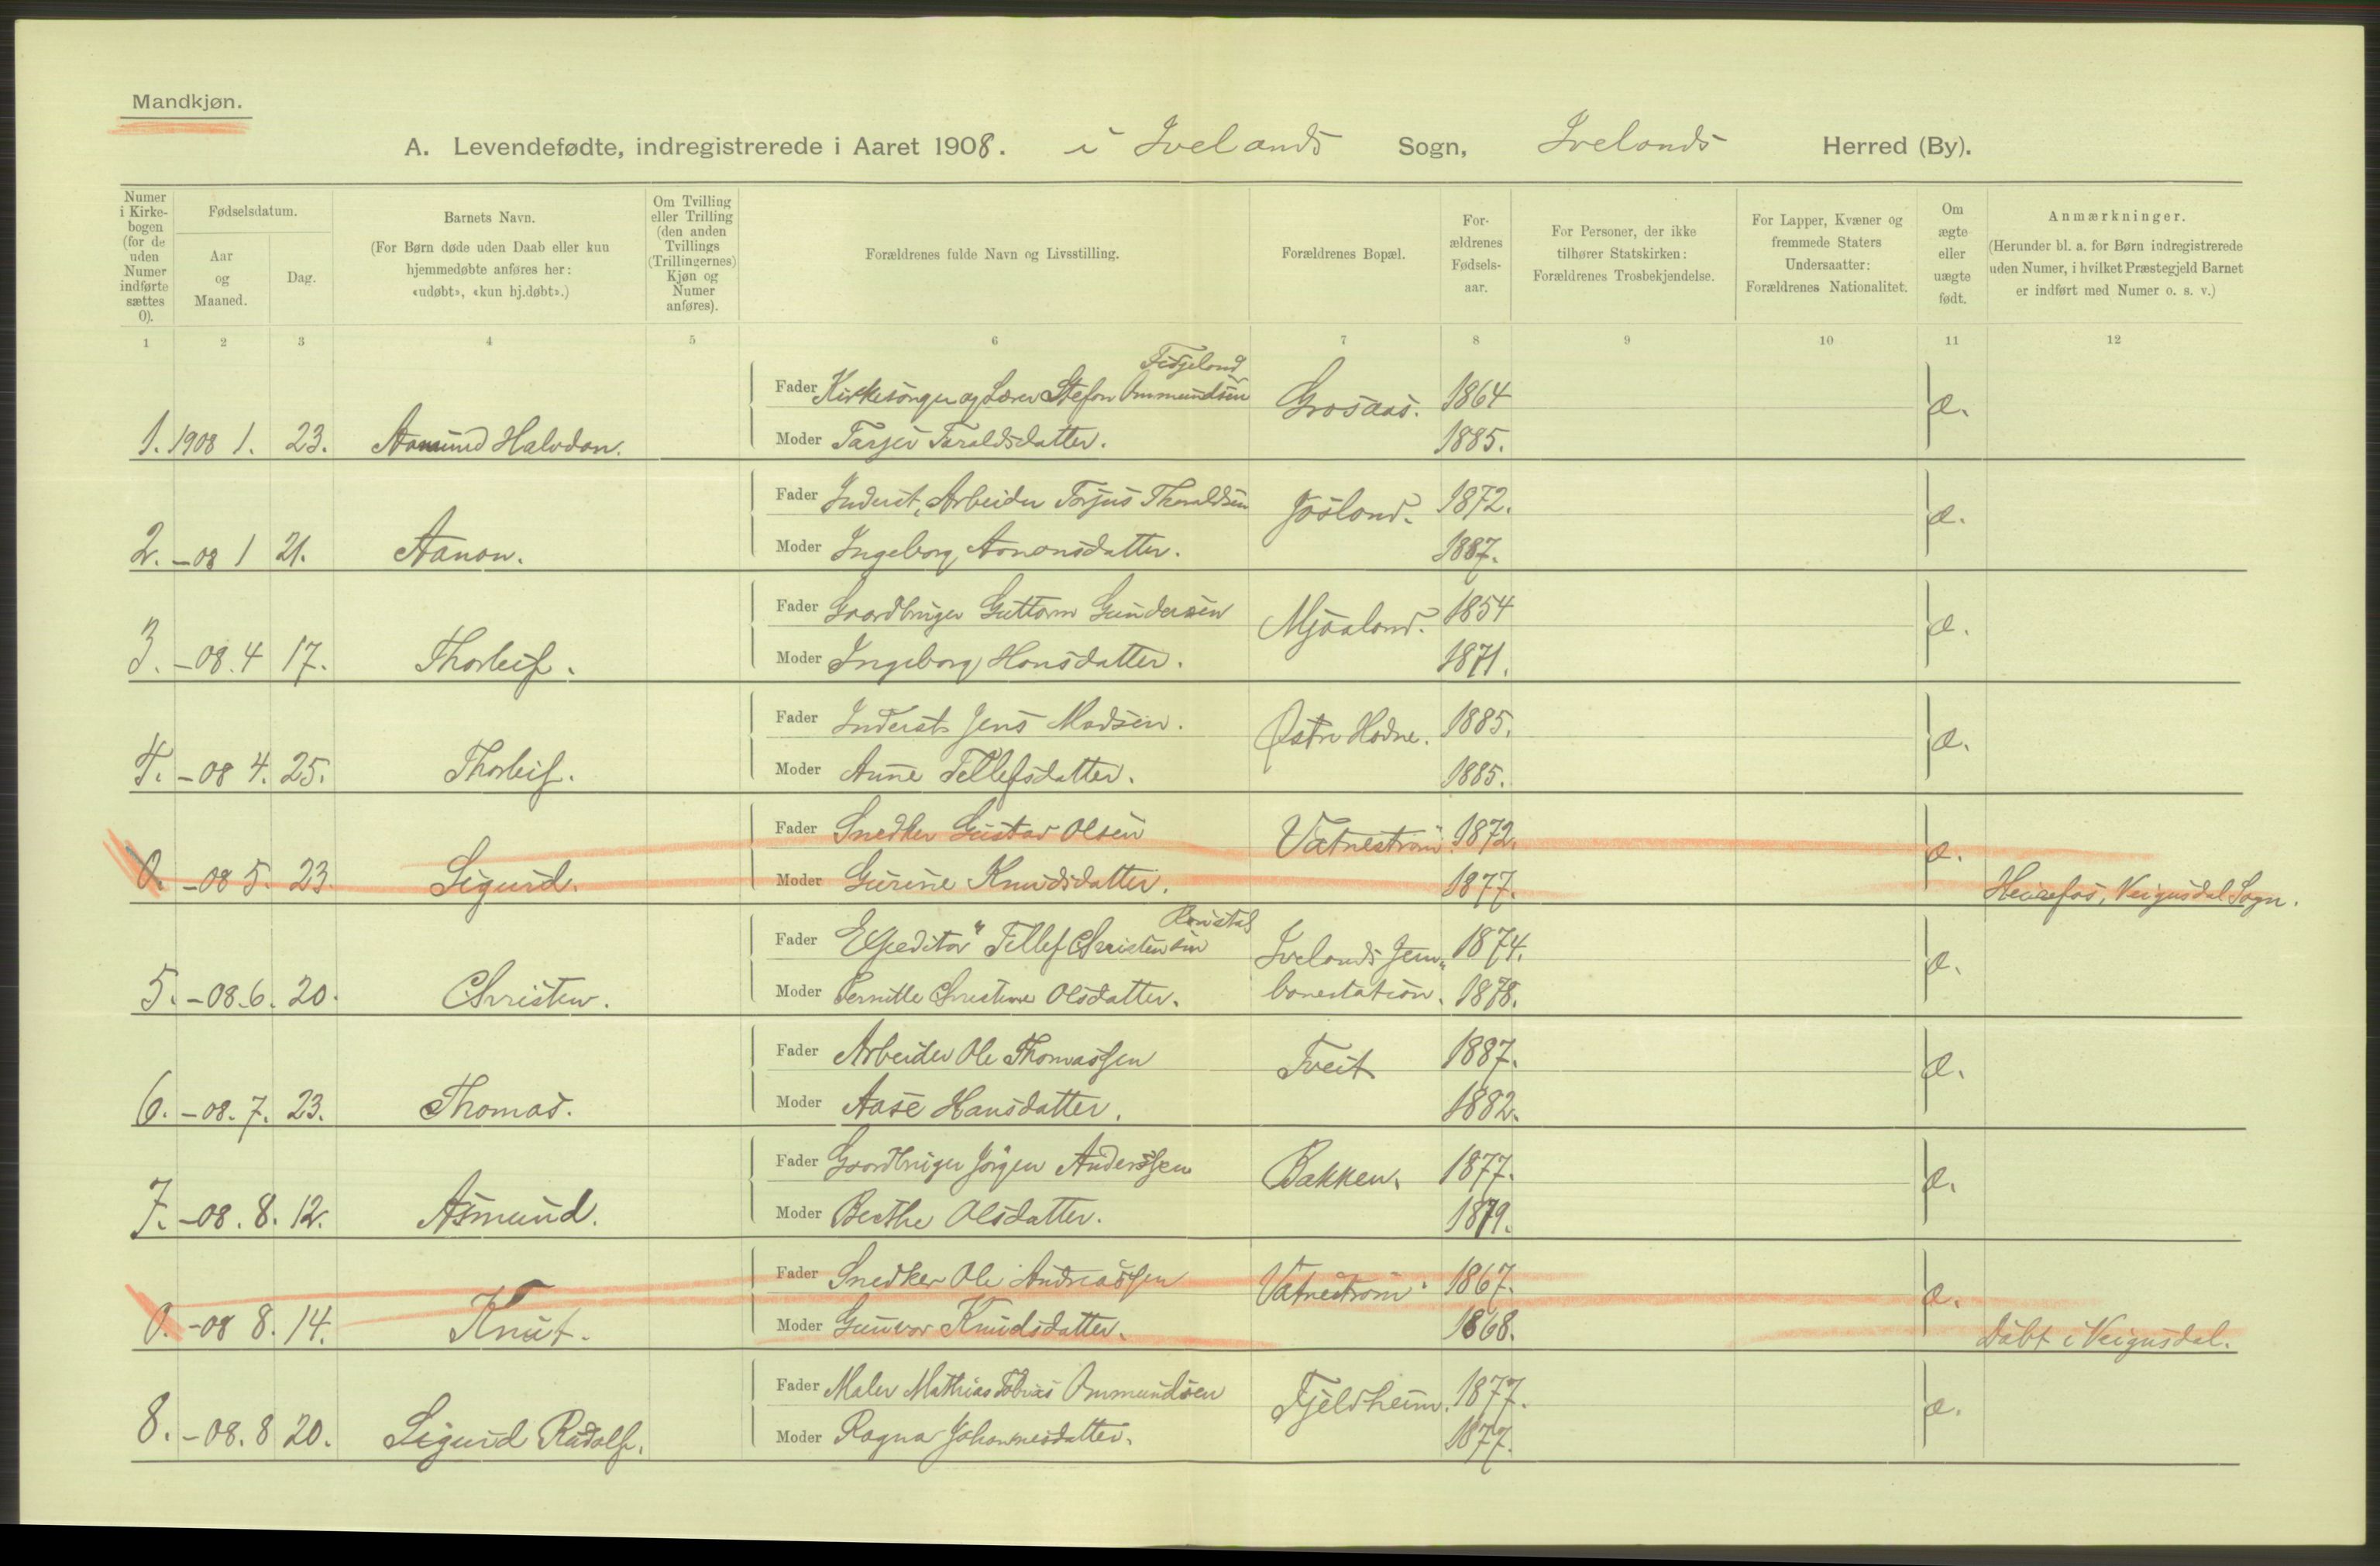 Mandkjøn.
A. Levendefødte, indregistrerede i Aaret 1908. i Ivelands Sogn, Ivelands Herred (By).
Numer i Kirkebogen (for de uden Numer indførte sættes 0).
Fødselsdatum.
Aar og Maaned.
Dag.
Barnets Navn.
(For Børn døde uden Daab eller kun hjemmedøbte anføres her: «udøbt», «kun hj.døbt».)
Om Tvilling eller Trilling (den anden Tvillings (Trillingernes) Kjøn og Numer anføres).
Forældrenes fulde Navn og Livsstilling.
Forældrenes Bopæl.
Forældrenes Fødselsaar.
For Personer, der ikke tilhører Statskirken: Forældrenes Trosbekjendelse.
For Lapper, Kvæner og fremmede Staters Undersaatter: Forældrenes Nationalitet.
Om ægte eller uægte født.
Anmærkninger.
(Herunder bl. a. for Børn indregistrerede uden Numer, i hvilket Præstegjeld Barnet er indført med Numer o. s. v.)
1 2 3 4 5 6 7 8 9 10 11 12
Fidjeland
Fader Kirkesanger og Lærer Stefan Ommundsen Grosaas. 1864 æ.
1. 1908 1. 23. Aamund Halvdan. Moder Tarjer Taraldsdatter. 1885.
Fader Inderst, Arbeider Torjus Thoraldsen Josland. 1872. æ.
2. -08 1 21. Aanon. Moder Ingeborg Aanonsdatter. 1887.
Fader Gaardbruger Guttorm Gundersen Mjaaland. 1854 æ.
3. -08. 4 17. Thorleif. Moder Ingeborg Hansdatter. 1871.
Fader Inderst Jens Madsen. Østre Hodne. 1885. æ.
4. -08 4. 25. Thorleif. Moder Anne Tellefsdatter. 1885.
Fader Snedker Gustav Olsen Vatnestrøm. 1872. æ.
0. -08 5. 23. Sigurd. Moder Gurine Knudsdatter. 1877. Heirefos, Veigusdal Sogn.
Fader Expeditør Tellef Christensen Ivelands Jern- 1874. æ.
5. -08. 6. 20. Christen. Moder Pernille Christine Olsdatter. banestation. 1878.
Fader Arbeider Ole Thomassen Tveit 1887. æ.
6. -08. 7. 23. Thomas. Moder Aase Hansdatter. 1882.
Fader Gaardbruger Jørgen Anderssen Bakken. 1877. æ.
7. -08. 8. 12. Asmund. Moder Berthe Olsdatter. 1879.
Fader Snedker Ole Andreassen Vatnestrøm. 1867. æ.
0. -08 8. 14. Knut. Moder Gunvor Knudsdatter. 1868. Døbt i Veigusdal.
Fader Maler Mathias Tobias Ommundsen Fjeldheim. 1877. æ.
8. -08. 8 20. Sigurd Radolf. Moder Ragna Johannesdatter. 1877.